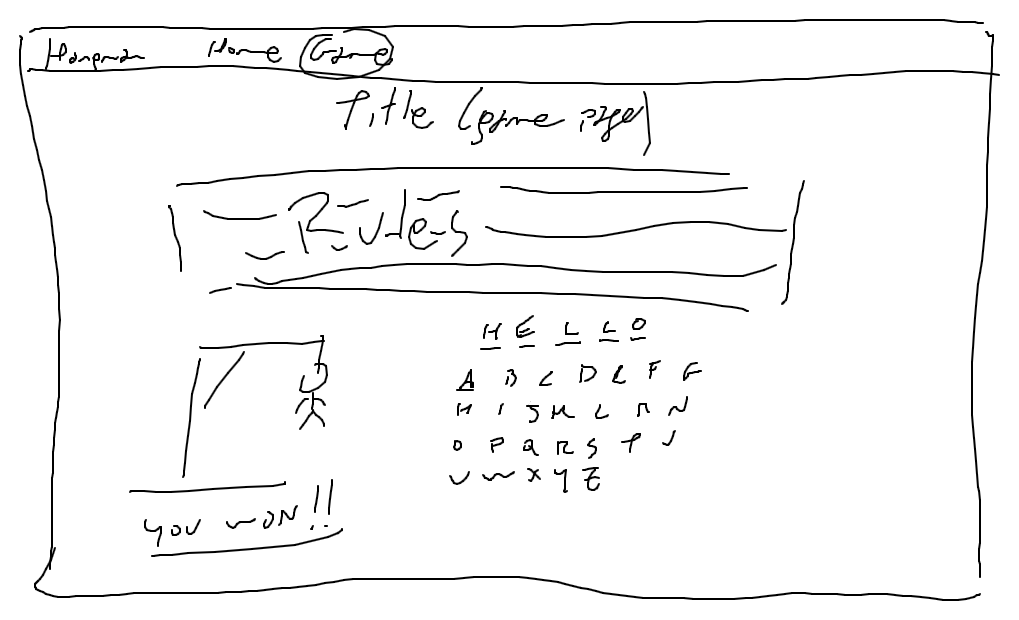 Hangman Home Game
Title (game page)
Rules
H E L L O
A B C D E F G
H I J K L M N
O P Q R S T U
V W X Y Z
YOU WON!!